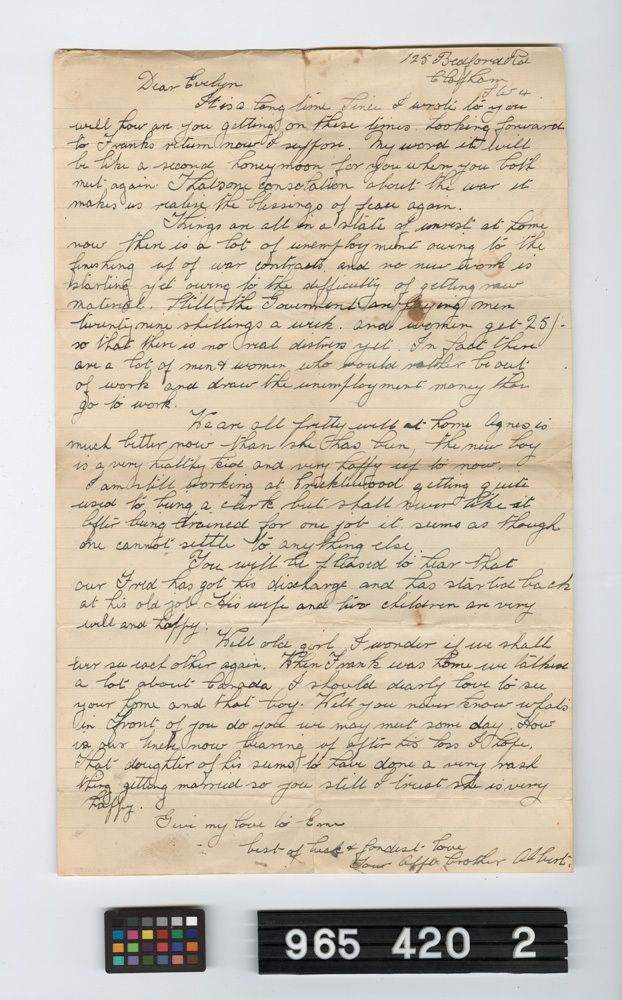 125 Bedford Rd
Clapham
SW4
Dear Evelyn
It is a long time since I wrote to you
well how are you getting on these times. Looking forward
to Franks return now I suppose. My word it will
be like a second honeymoon for you when you both
meet again. Thats one consolation about the war it
makes us realise the blessings of peace again.
Things are all in a state of unrest at home
now there is a lot of unemployment owing to the
finishing up of war contracts, and no new work is
starting yet owing to the difficulty of getting raw
material. Still the Government are paying men
twenty nine shillings a week. and women get 25/-
so that there is no real distress yet. In fact there
are a lot of men & women who would rather be out
of work and draw the unemployment money than
go to work.
We are all pretty well at home Agnes is
much better now than she has been, the new boy
is a very healthy kid and very happy up to now.
I am still working at Cricklewood getting quite
used to being a clerk but shall never like it
After being trained for one job it seems as though
one cannot settle to anything else.
You will be pleased to hear that
our Fred has got his discharge and has started back
at his old job. His wife and two children are very
well and happy.
Well old girl I wonder if we shall
ever see each other again. When Frank was home we talked
a lot about Canada, I should dearly love to see
your home and that boy. Well you never know whats
in front of you do you we may meet some day. How
is our Uncle now bearing up after his loss I hope,
That daughter of his seems to have done a very rash
thing getting married so you still I trust she is very
happy.
Give my love to Em
best of luck & fondest love
Your affte brother Albert.
965 420 2